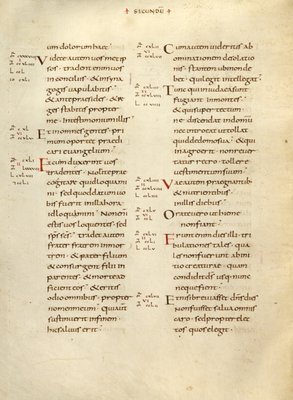 SECUNDŪ
um dolorum haec
Videte autem uosmetip
sos · tradent enim uos
in conciliis · & in syna
gogis uapulabitis
& ante praesides · & re
ges stabitis propter
me · In testimonium illis
Et in omnes gentes · pri
mum oportet praedi
cari euangelium
Et cum duxerint uos
tradentes · Nolite prae
cogitare quid loquami
ni · sed quod datum uo
bis fuerit in illa hora
id loquamini · Non enim
estis uos loquentes · sed
sps̄ scs̄ · Tradet autem
frater fratrem in mor
tem · & pater filium
& consurgent filii in
parentes · & morte ad
ficient eos · & eritis
odio omnibus · propter
nomen meum · Qui autem
sustinuerit in finem
hic saluus erit ·
Cum autem uideritis ab
ominationem desolatio
nis · stantem ubi non de
bet · qui legit intellegat
Tunc qui in iudaea sunt
fugiant in montes ·
& qui super tectum
ne · discendat in domum
nec introeat ut tollat
quid de domo sua · & qui
in agro erit · non reuer
tatur retro · tollere
uestimentum suum
Vae autem praegnantib·
& nutrientibus
in illis diebus
Orate uero ut hieme
non fiant
Erunt enim dies illi · tri
bulationes tales · qua
les non fuerunt ab ini
tio creaturae · quam
condidit ds̄ usq· nunc
neque fient ·
Et nisi breuiasset dn̄s dies
Non fuisset salua omnis
caro · sed propter elec
tos quos elegit ·